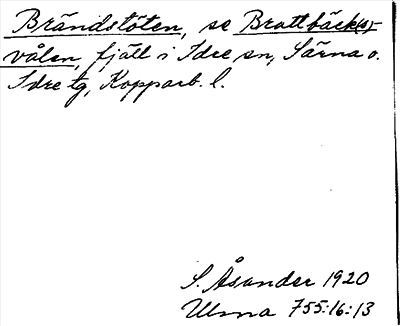 Brändstöten, se Brattbäck(s)-
vålen, fjäll i Idre sn, Särna o.
Idre tg, Kopparb. l.
S. Åsander 1920
Ulma 755:16:13